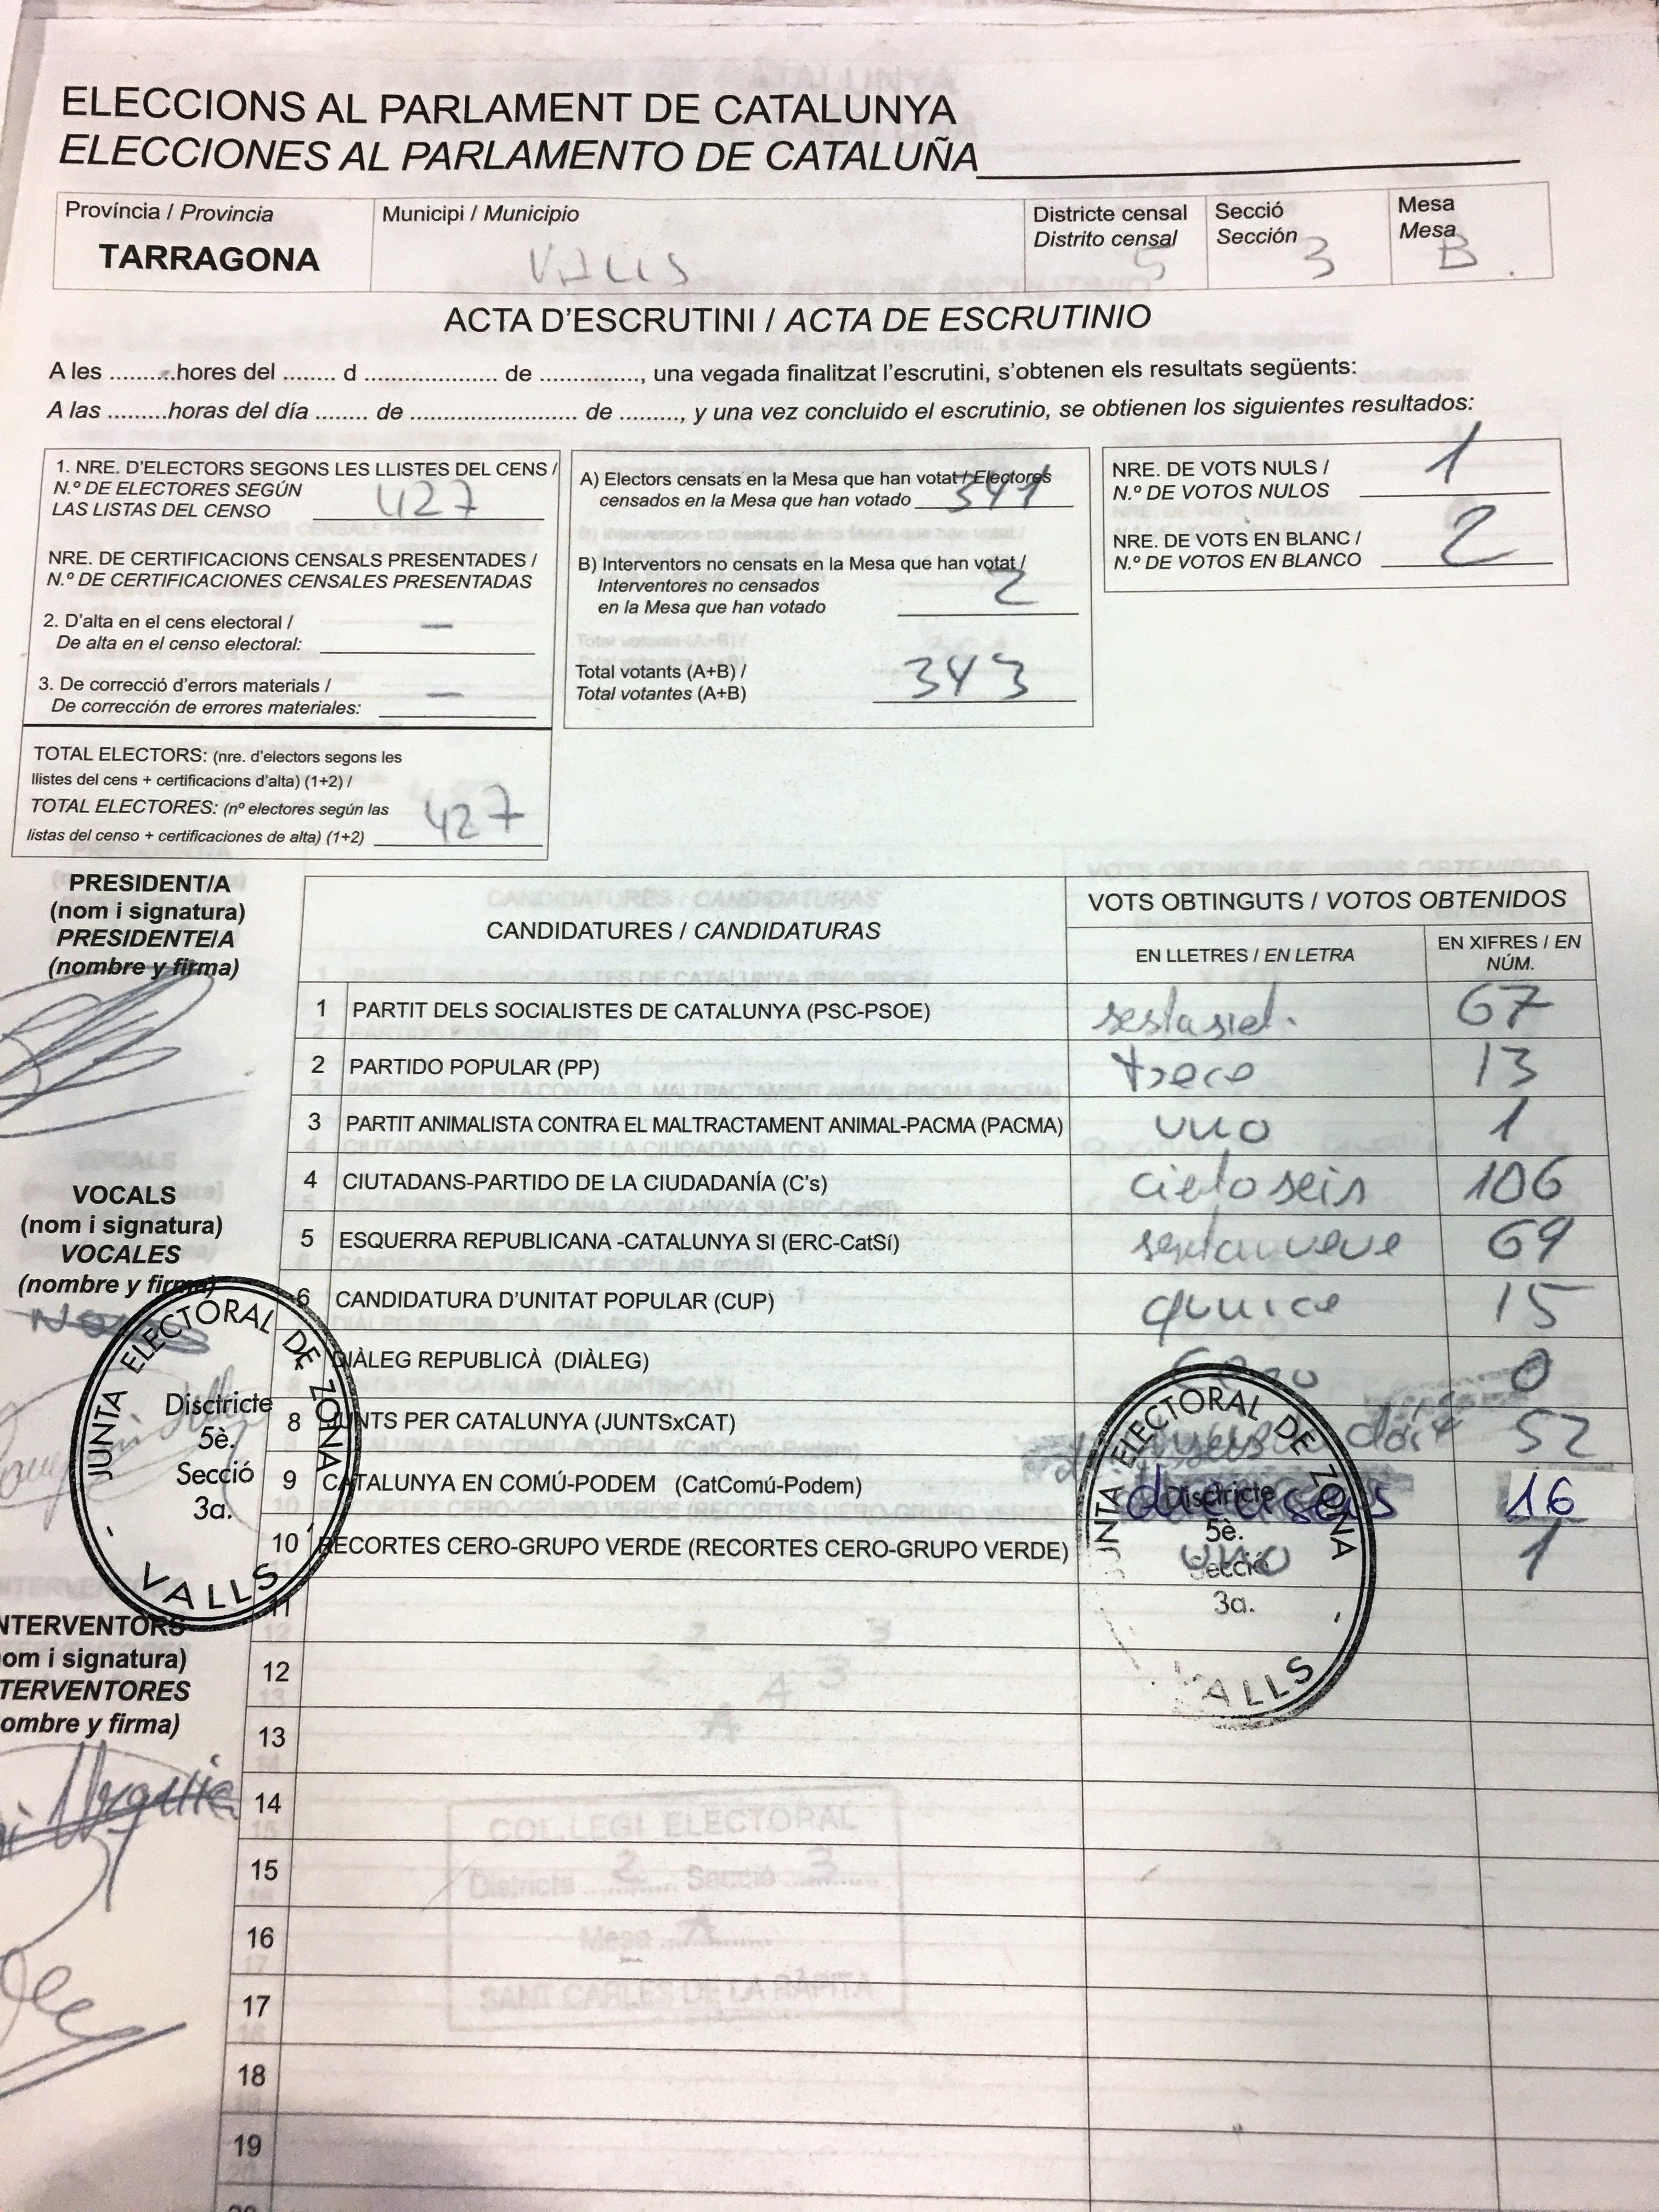 ELECCIONS AL PARLAMENT DE CATALUNYA
ELECCIONES AL PARLAMENTO DE CATALUÑA
Província / Provincia
TARRAGONA
Municipi / Municipio
VALLS
Districte censal
Distrito censal
5
Secció
Sección
3
Mesa
Mesa
B.
ACTA D'ESCRUTINI / ACTA DE ESCRUTINIO
A les .........hores del ........ d .................... de ..............., una vegada finalitzat l'escrutini, s'obtenen els resultats següents:
A las .........horas del día ........ de ......................... de .........., y una vez concluido el escrutinio, se obtienen los siguientes resultados:
1. NRE. D'ELECTORS SEGONS LES LLISTES DEL CENS /
N.º DE ELECTORES SEGÚN
LAS LISTAS DEL CENSO 427
NRE. DE CERTIFICACIONS CENSALS PRESENTADES /
N.º DE CERTIFICACIONES CENSALES PRESENTADAS
2. D'alta en el cens electoral /
De alta en el censo electoral: —
3. De correcció d'errors materials /
De corrección de errores materiales: —
TOTAL ELECTORS: (nre. d'electors segons les
llistes del cens + certificacions d'alta) (1+2) /
TOTAL ELECTORES: (nº electores según las
listas del censo + certificaciones de alta) (1+2) 427
A) Electors censats en la Mesa que han votat / Electores
censados en la Mesa que han votado 341
B) Interventors no censats en la Mesa que han votat /
Interventores no censados
en la Mesa que han votado 2
Total votants (A+B) /
Total votantes (A+B) 343
NRE. DE VOTS NULS /
N.º DE VOTOS NULOS 1
NRE. DE VOTS EN BLANC /
N.º DE VOTOS EN BLANCO 2
PRESIDENT/A
(nom i signatura)
PRESIDENTE/A
(nombre y firma)
VOCALS
(nom i signatura)
VOCALES
(nombre y firma)
NTERVENTORS
om i signatura)
TERVENTORES
ombre y firma)
CANDIDATURES / CANDIDATURAS
VOTS OBTINGUTS / VOTOS OBTENIDOS
EN LLETRES / EN LETRA
EN XIFRES / EN
NÚM.
1 PARTIT DELS SOCIALISTES DE CATALUNYA (PSC-PSOE) 67
2 PARTIDO POPULAR (PP) trece 13
3 PARTIT ANIMALISTA CONTRA EL MALTRACTAMENT ANIMAL-PACMA (PACMA) uno 1
4 CIUTADANS-PARTIDO DE LA CIUDADANÍA (C's) cieto seis 106
5 ESQUERRA REPUBLICANA -CATALUNYA SI (ERC-CatSí) 69
6 CANDIDATURA D'UNITAT POPULAR (CUP) quince 15
DIÀLEG REPUBLICÀ (DIÀLEG) Cero 0
8 JUNTS PER CATALUNYA (JUNTSxCAT) 52
9 CATALUNYA EN COMÚ-PODEM (CatComú-Podem) 16
10 RECORTES CERO-GRUPO VERDE (RECORTES CERO-GRUPO VERDE) uno 1
11
12
13
14
15
16
17
18
19
JUNTA ELECTORAL DE ZONA
Disctricte
5è.
Secció
3a.
- VALLS -
JUNTA ELECTORAL DE ZONA
Disctricte
5è.
Secció
3a.
VALLS -
COL.LEGI ELECTORAL
Districte 2 Secció 3
Mesa A
SANT CARLES DE LA RÀPITA